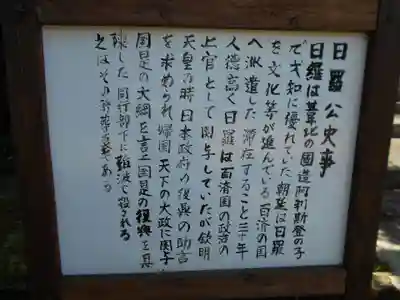 日羅公史亊
日羅は葦北の國造阿利斯登の子
で才知に優れていた朝廷は日羅
を文化等が進んでいる百済の国
へ派遣した 滞在すること三十年
人徳高く日羅は百済国の政治の
上官として関与していたが欽明
天皇の時日本政府の復興の助言
を求められ帰国 天下の大政に関予
国是の大綱を言上国是の復興を具
録した 同行部下に難波で殺される
之はその 葬 墓である